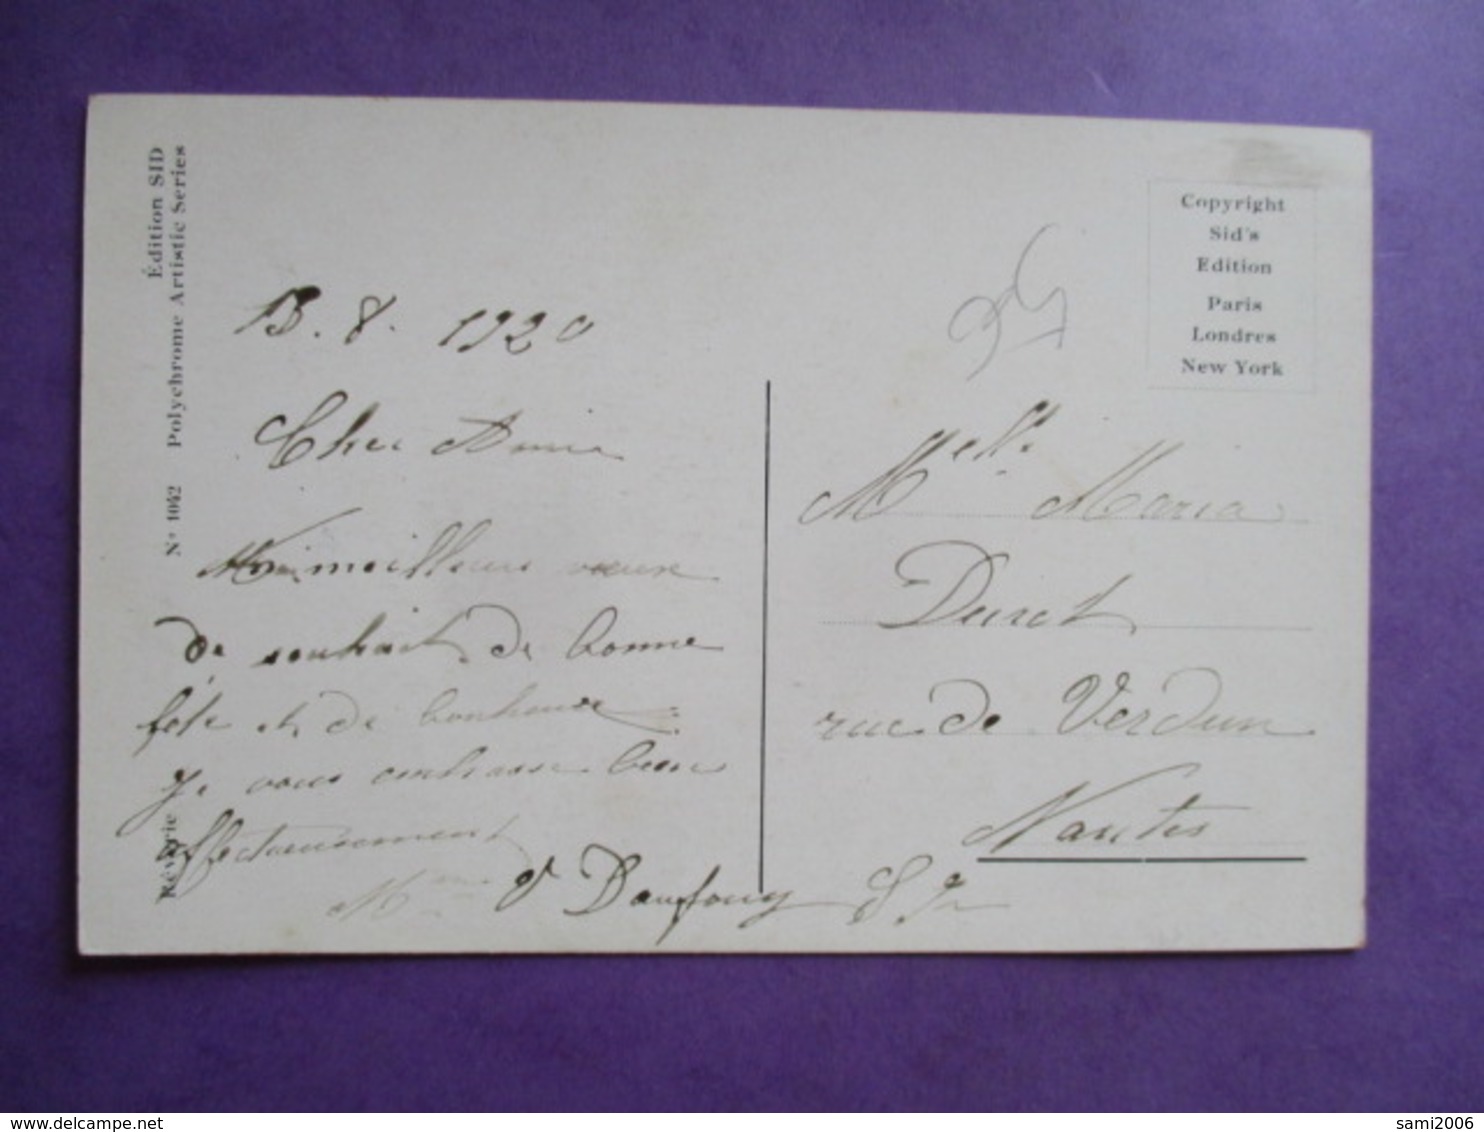 Édition SID
Nº 1042 Polychrome Artistic Series
Rêverie
Copyright
Sid's
Edition
Paris
Londres
New York
95
13. 8. 1920
Cher Amie
meilleurs vœux
de souhait de bonne
fête et de bonheur
Je vous embrasse bien
affectueusement
Mme
Melle Maria
Duret
rue de Verdun
Nantes
sami2006